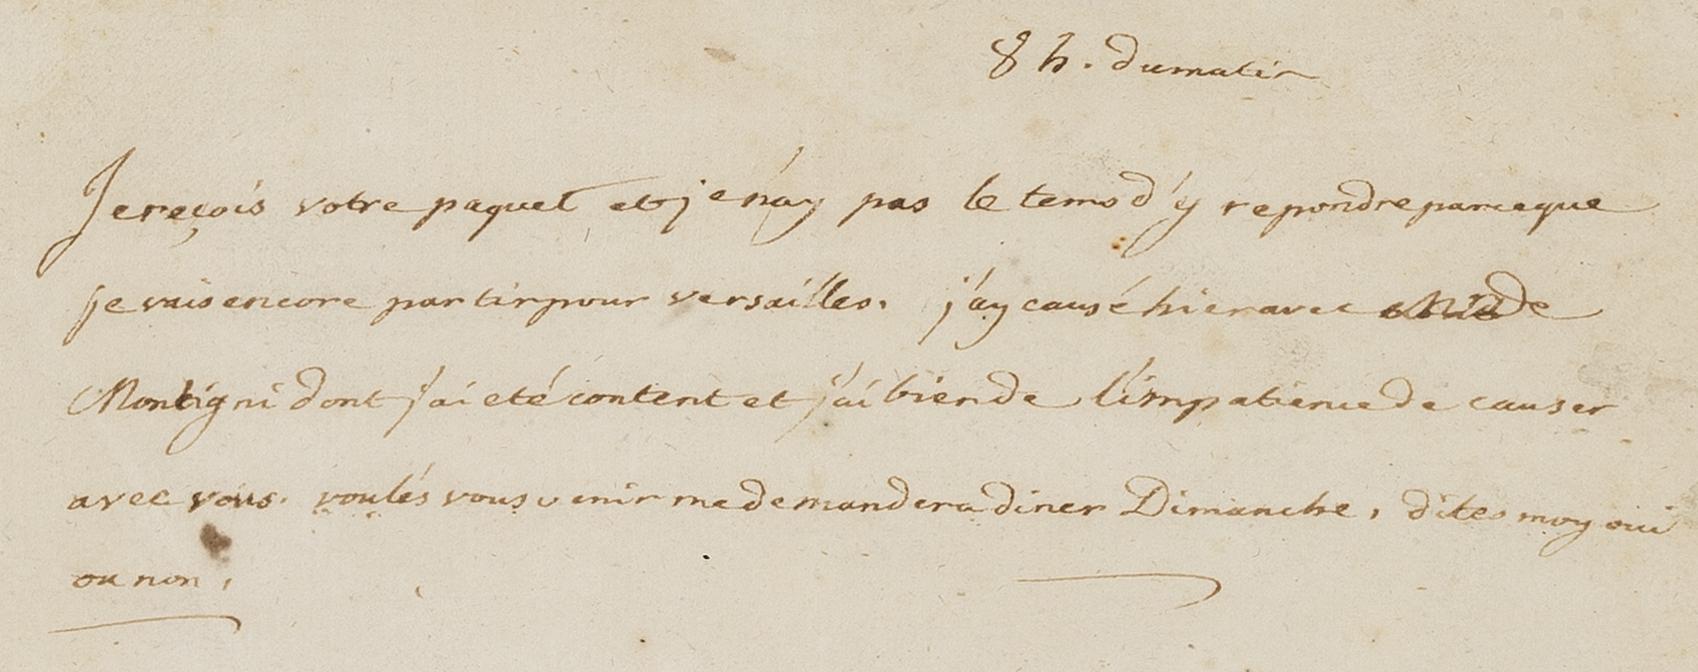 8 h. du matin
Je reçois votre paquet et je n'ay pas le tems d'y repondre parceque
je vais encore partir pour versailles. j'ay causé hier avec de
Montigni dont j'ai eté content et j'ai bien de l'impatience de causer
avec vous. voulés vous venir me demander a diner Dimanche, dites moy oui
ou non,